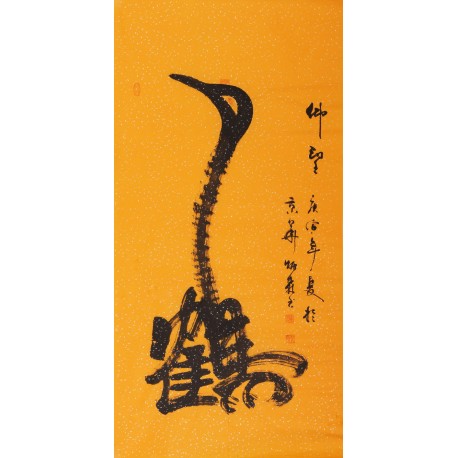 仰望
庚寅年夏於
京華
鶴